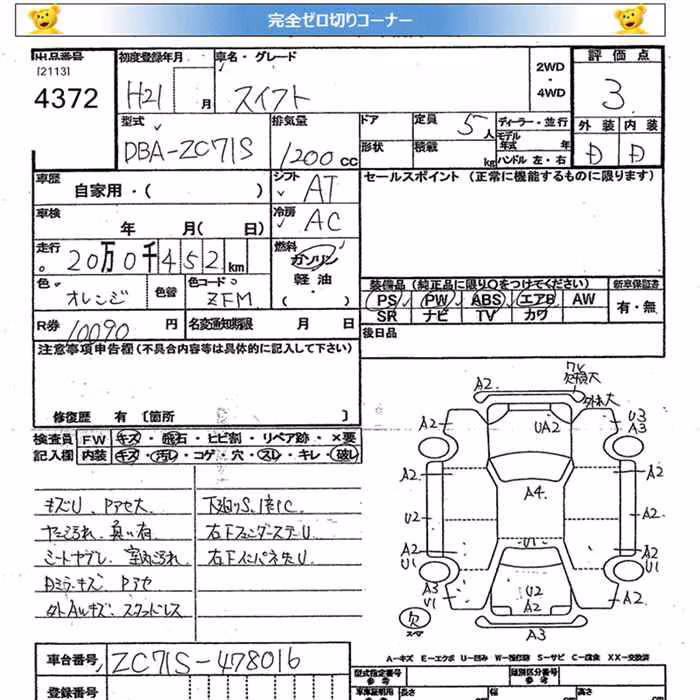 完全ゼロ切りコーナー
出品番号 初度登録年月 車名・グレード 2WD・4WD 評価点
[2113]
4372 H21 月 スイフト 3
型式 排気量 ドア 定員 5人 ディーラー・並行 外装 内装
DBA-ZC71S 1200cc 形状 積載 kg モデル年式 年 ハンドル 左・右 D D
車歴 シフト セールスポイント (正常に機能するものに限ります)
自家用・( ) AT
車検 冷房
年 月( 日) AC
走行 燃料
20万0千452km ガソリン
軽油
色 色替 色コード 装備品 (純正品に限り○をつけてください) 新車保証書
オレンジ ZFM ・( ) PS PW ABS エアB AW 有・無
SR ナビ TV カワ
R券 10090 円 名変通知期限 月 日 後日品
注意事項申告欄(不具合内容等は具体的に記入して下さい)
修復歴 有 [箇所 ]
検査員 FW キズ・飛石・ヒビ割・リペア跡・×要
記入欄 内装 キズ・汚れ・コゲ・穴・スレ・キレ・破レ
キズU、Pアセ大 下廻りS、1部C
右フェンダーステーU
シートヤブレ、室内汚れ
Dミラーキズ Pアセ
外AWキズ、スタッドレス
A2
欠損大
A2 UA2 U3
A3
A2 A4 A2
U2 A2
A2 U1 A2
U1 U1
A3 U2 A2
U1 A2
欠 スペア A3
A-キズ E-エクボ U-凹み W-補修跡 S-サビ C-腐食 XX-交換済
車台番号 ZC71S-478016 型式指定番号 類別区分番号
参考 参考
登録番号 長さ 幅 高さ